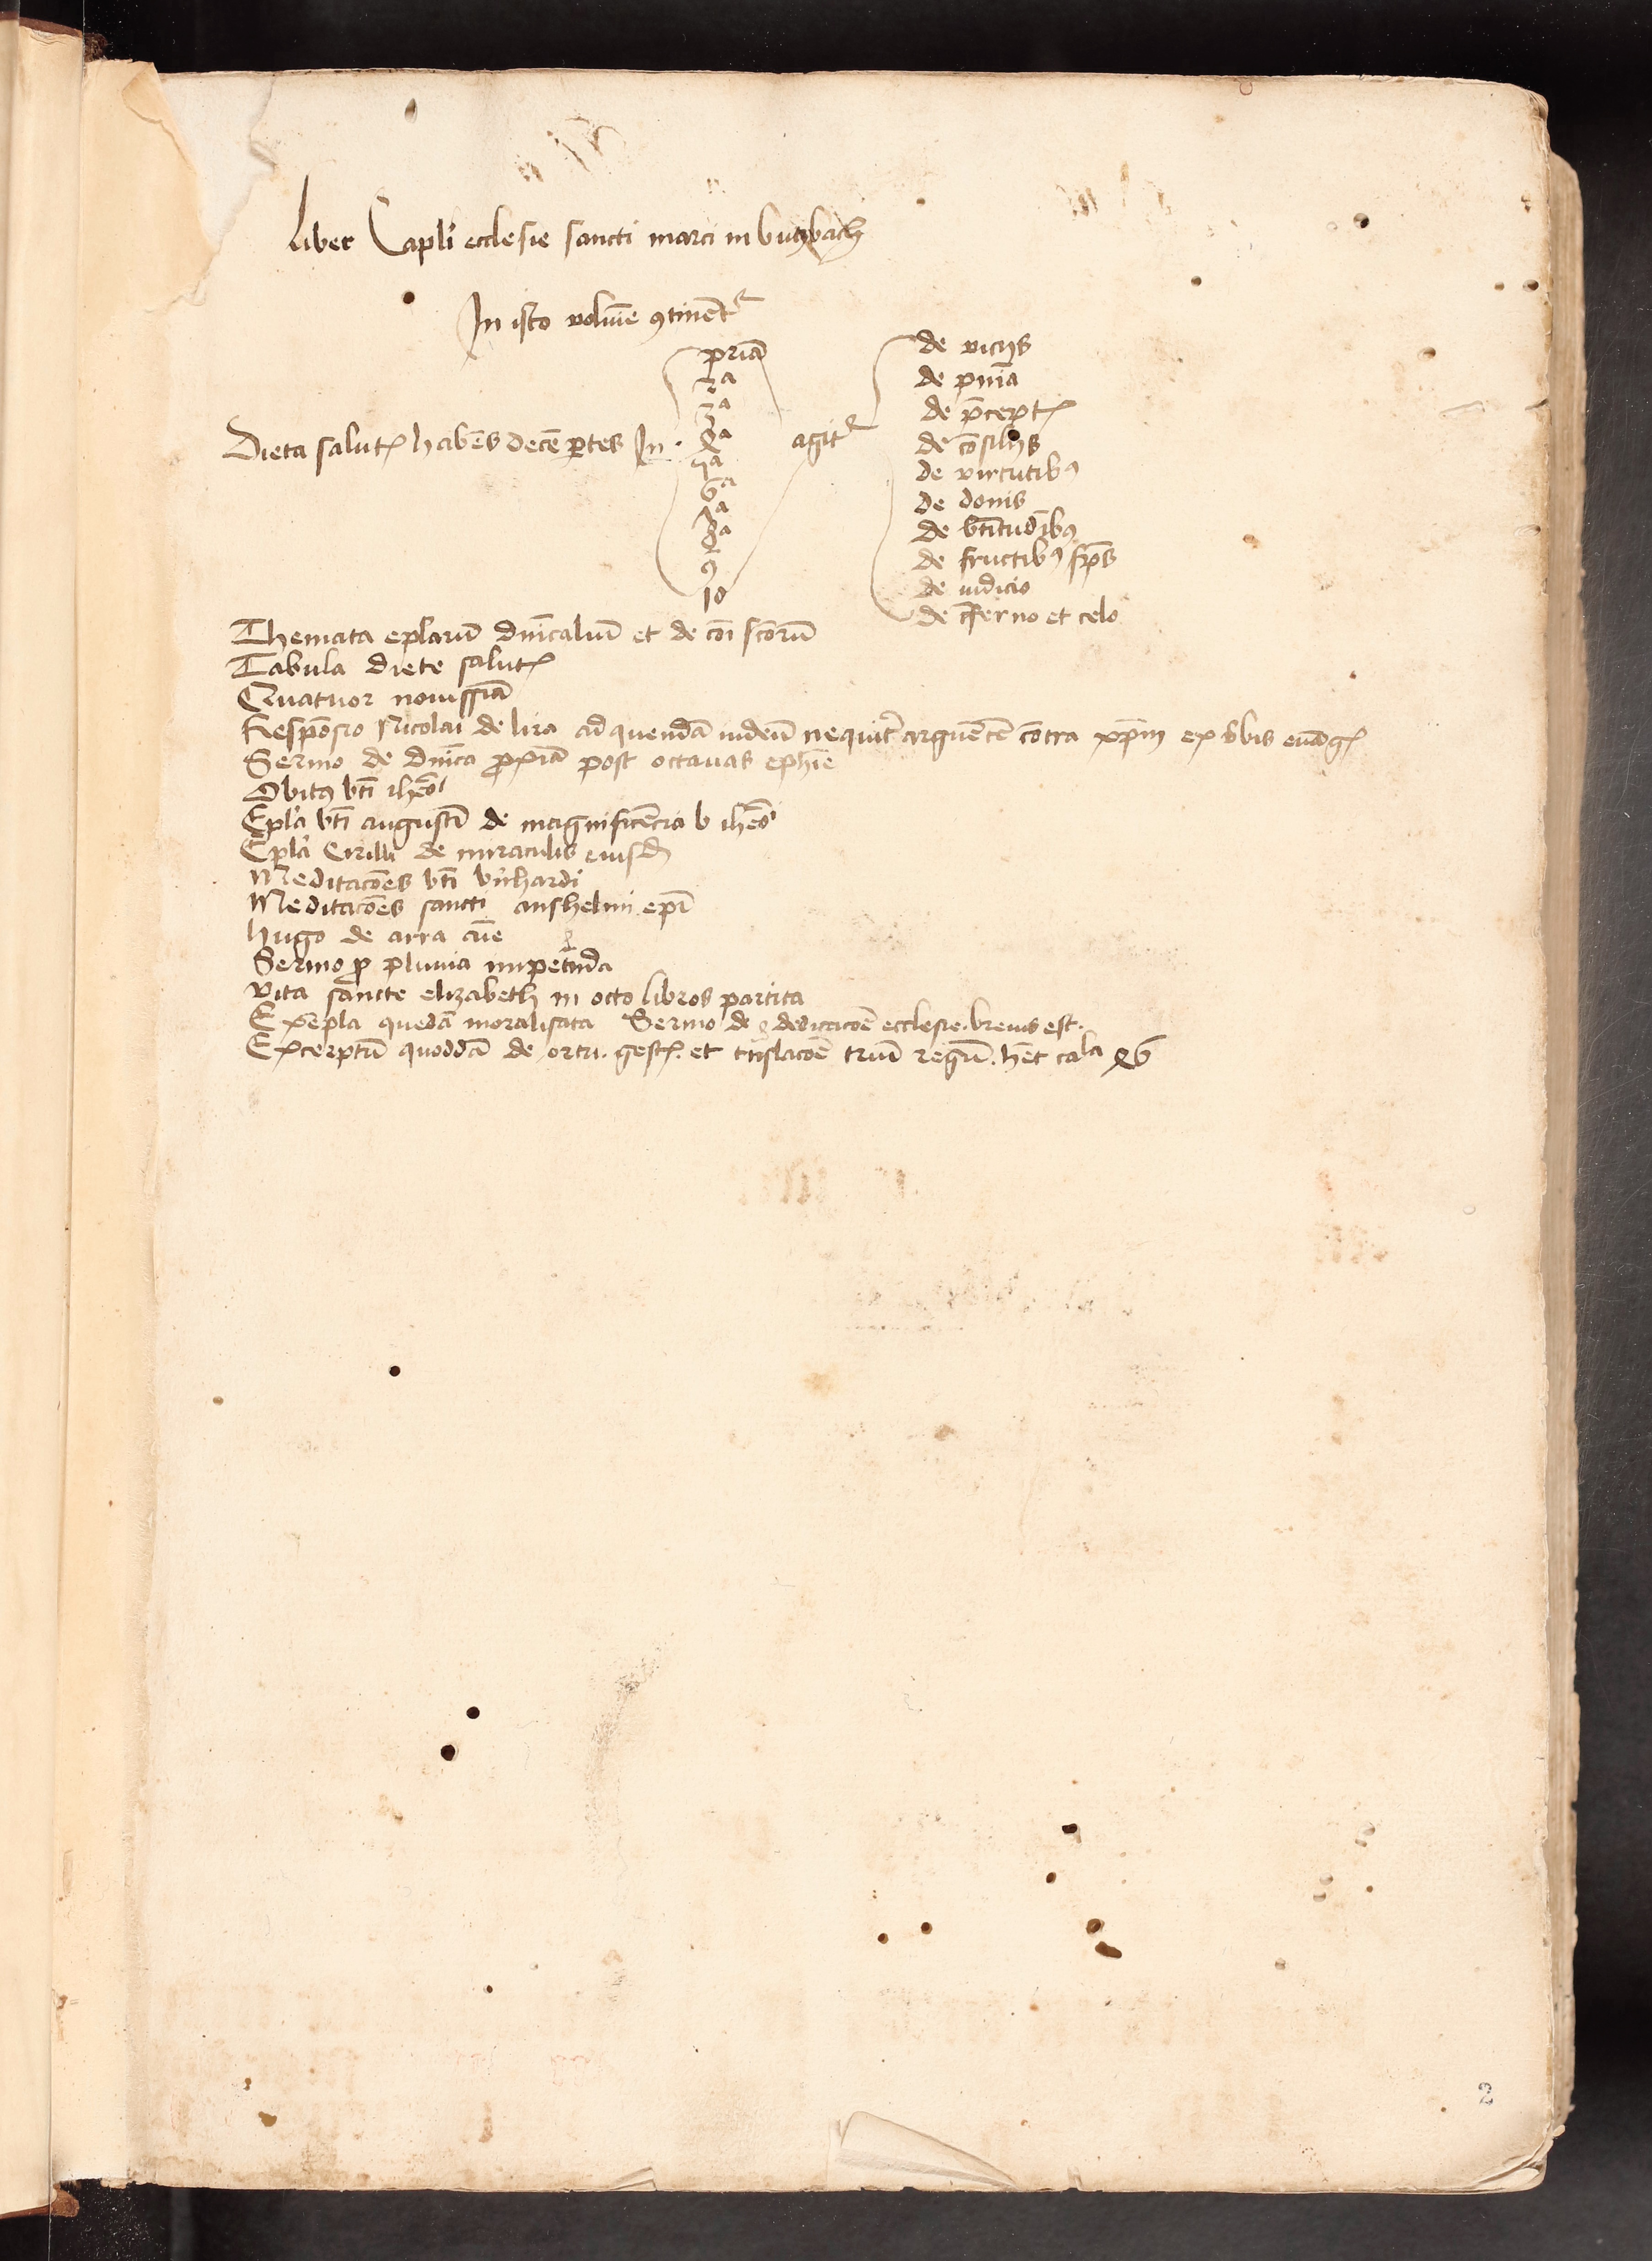 Liber Capli ecclesie sancti marci in butzbach
In isto volūīe ꝯtinētᷣ
Dieta salutꝭ habēs decē ꝑtes In
priā
2a
3a
4a
5a
6a
7a
8a
9
10
agitᷣ
de vicijs
de pn̄ia
de p̄ceptꝭ
de cōsilijs
de virtutibꝰ
de donis
de bt̄itudībꝰ
de fructibꝰ sp̄s
de iudicio
de īferno et celo
Themata eplarū dn̄icaliū et de cōi sc̄orū
Tabula diete salutꝭ
Quatuor nouissīa
Respōsio Nicolai de lira ad quendā iudeū nequit̄ arguētē cōtra xp̄m ex v̄bis euāgꝭ
Sermo de dn̄ica ꝓxīa post octauas ephīe
Obitꝰ bt̄i ih̄eōī
Epl̄a bt̄i augustī de magnificēcia b ih̄eōī
Epl̄a Cirilli de miraculis eiusdē
Meditacōes bt̄i bn̄hardi
Meditacōes sancti anshelmi ep̄i
Hugo de arra aīe
Sermo ꝓ pluuia impetrāda
Vita sancte elizabeth in octo libros partita
Exēpla quedā moralisata Sermo de dedicacōe ecclesie. breuis est.
Excerptū quoddā de ortu. gestꝭ. et trāslacōe triū regū. h̄et cala 46
2